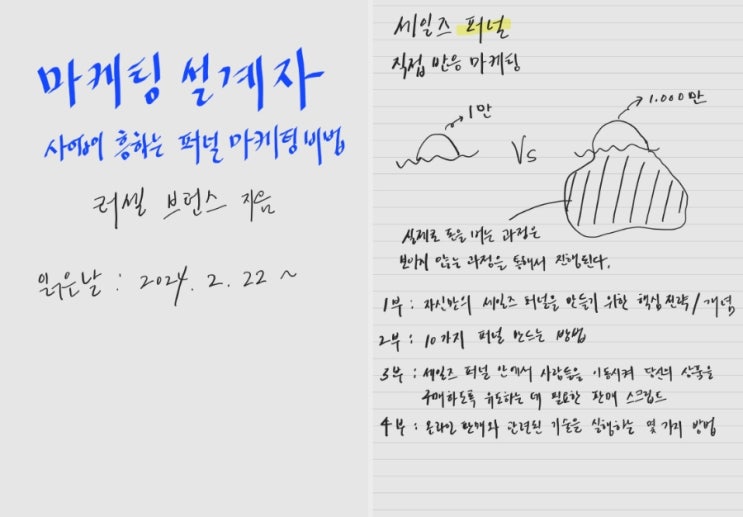 마케팅 설계자
사업이 흥하는 퍼널 마케팅 비법
러셀 브런슨 지음
읽은날 : 2024. 2. 22 ~
세일즈 퍼널
직접 반응 마케팅
1만
Vs
1.000만
실제로 돈을 버는 과정은
보이지 않는 과정을 통해서 진행된다.
1부 : 자신만의 세일즈 퍼널을 만들기 위한 핵심 전략/개념
2부 : 10가지 퍼널 만드는 방법
3부 : 세일즈 퍼널 안에서 사람들을 이동시켜 당신의 상품을
구매하도록 유도하는 데 필요한 판매 스크립트
4부 : 온라인 판매와 관련된 기술을 실행하는 몇 가지 방법